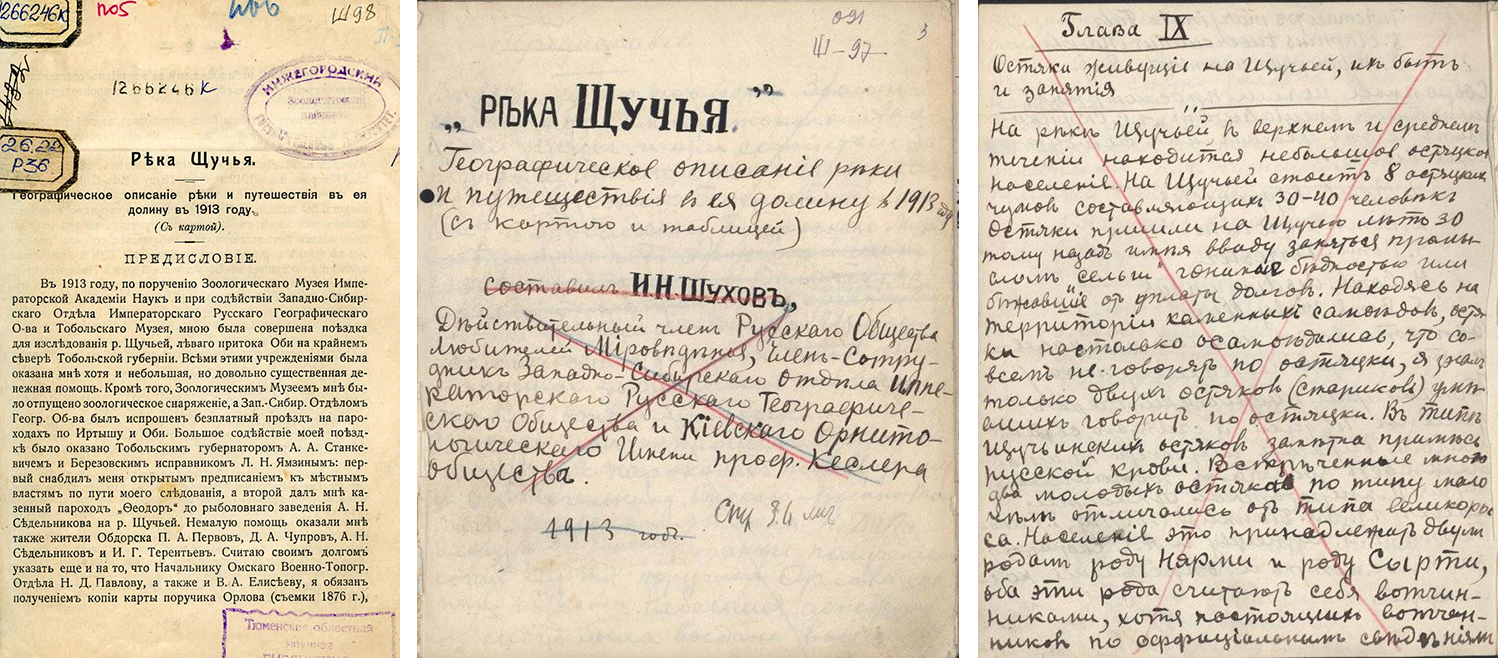 1266246К
по5
Ш98
1266246К
НИЖЕГОРОДСКИЙ
26.22
Р36.
Рѣка Щучья.
Географическое описаніе рѣки и путешествія въ ея
долину въ 1913 году.
(Съ картой).
ПРЕДИСЛОВІЕ.
Въ 1913 году, по порученію Зоологическаго Музея Импе-
раторской Академіи Наукъ и при содѣйствіи Западно-Сибир-
скаго Отдѣла Императорскаго Русскаго Географическаго
О-ва и Тобольскаго Музея, мною была совершена поѣздка
для изслѣдованія р. Щучьей, лѣваго притока Оби на крайнемъ
сѣверѣ Тобольской губерніи. Всѣми этими учрежденіями была
оказана мнѣ хотя и небольшая, но довольно существенная де-
нежная помощь. Кромѣ того, Зоологическимъ Музеемъ мнѣ бы-
ло отпущено зоологическое снаряженіе, а Зап.-Сибир. Отдѣломъ
Геогр. Об-ва былъ испрошенъ безплатный проѣздъ на паро-
ходахъ по Иртышу и Оби. Большое содѣйствіе моей поѣзд-
кѣ было оказано Тобольскимъ губернаторомъ А. А. Станке-
вичемъ и Березовскимъ исправникомъ Л. Н. Ямзинымъ: пер-
вый снабдилъ меня открытымъ предписаніемъ къ мѣстнымъ
властямъ по пути моего слѣдованія, а второй далъ мнѣ ка-
зенный пароходъ „Ѳеодоръ" до рыболовнаго заведенія А. Н.
Сѣдельникова на р. Щучьей. Немалую помощь оказали мнѣ
также жители Обдорска П. А. Первовъ, Д. А. Чупровъ, А. Н.
Сѣдельниковъ и И. Г. Терентьевъ. Считаю своимъ долгомъ
указать еще и на то, что Начальнику Омскаго Военно-Топогр.
Отдѣла Н. Д. Павлову, а также и В. А. Елисѣеву, я обязанъ
полученіемъ копіи карты поручика Орлова (съемки 1876 г.),
Тюменская областная
научная
091
Ш-97
3
„РѢКА ЩУЧЬЯ."
Географическое описаніе рѣки
и путешествія в ея долину в 1913 году
(съ картою и таблицей)
Составилъ И.Н.ШУХОВЪ,
Дѣйствительный член Русскаго Общества
Любителей Міровѣдѣнія, Членъ-Сотру-
дникъ Западно-Сибирскаго отдѣла Импе-
раторскаго Русскаго Географиче-
скаго Общества и Кіевскаго Орнито-
логическаго Имени проф. Кеслера
общества.
1913 годъ.
Глава IX
Остяки живущіе на Щучьей, ихъ бытъ
и занятія
На рѣкѣ Щучьей в верхнем и среднем
теченіи находится небольшое остяцкое
населеніе. На Щучьей стоитъ 8 остяцких
чумов составляющих 30-40 человѣкъ
Остяки пришли на Щучью лѣтъ 30
тому назад имѣя ввиду заняться промы-
слом „сельги" гонимые бѣдностью или
бѣжавшіе от уплаты долгов. Находясь на
территоріи каменныхъ самоѣдов, остя-
ки настолько осамоѣдились, что со-
всемъ не говорятъ по остяцки, я
только двухъ остяков (стариков) умѣ-
ющих говорить по остяцки. Въ типѣ
Щучьинских остяков замѣтна примѣсь
русской крови. Встрѣченные мною
два молодыхъ остяка по типу мало
чѣмъ отличались отъ типа великорос-
са. Населеніе это принадлежитъ двум
родамъ роду Нярми и роду Сырти,
оба эти рода считаютъ себя вотчин-
никами, хотя настоящихъ вотчин-
ников по оффиціальнымъ свѣдѣніямъ